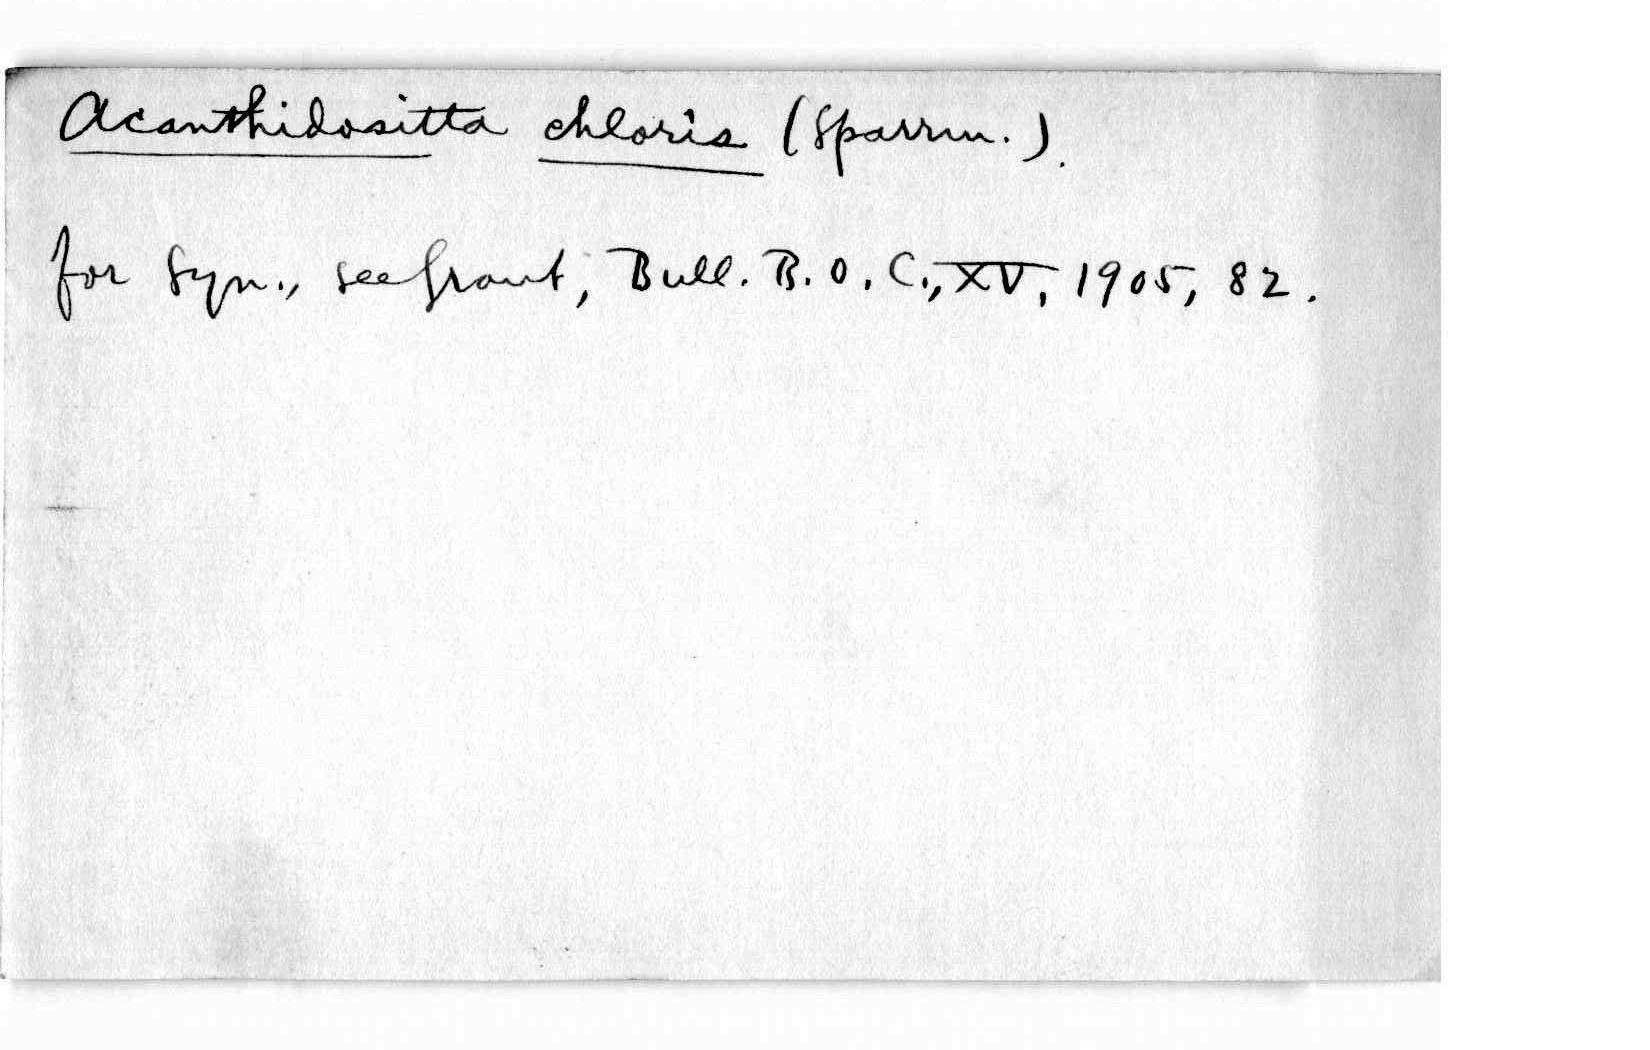 Acanthidositta chloris (Sparrm.).
for Syn., see Grant, Bull. B.O.C., XV, 1905, 82.